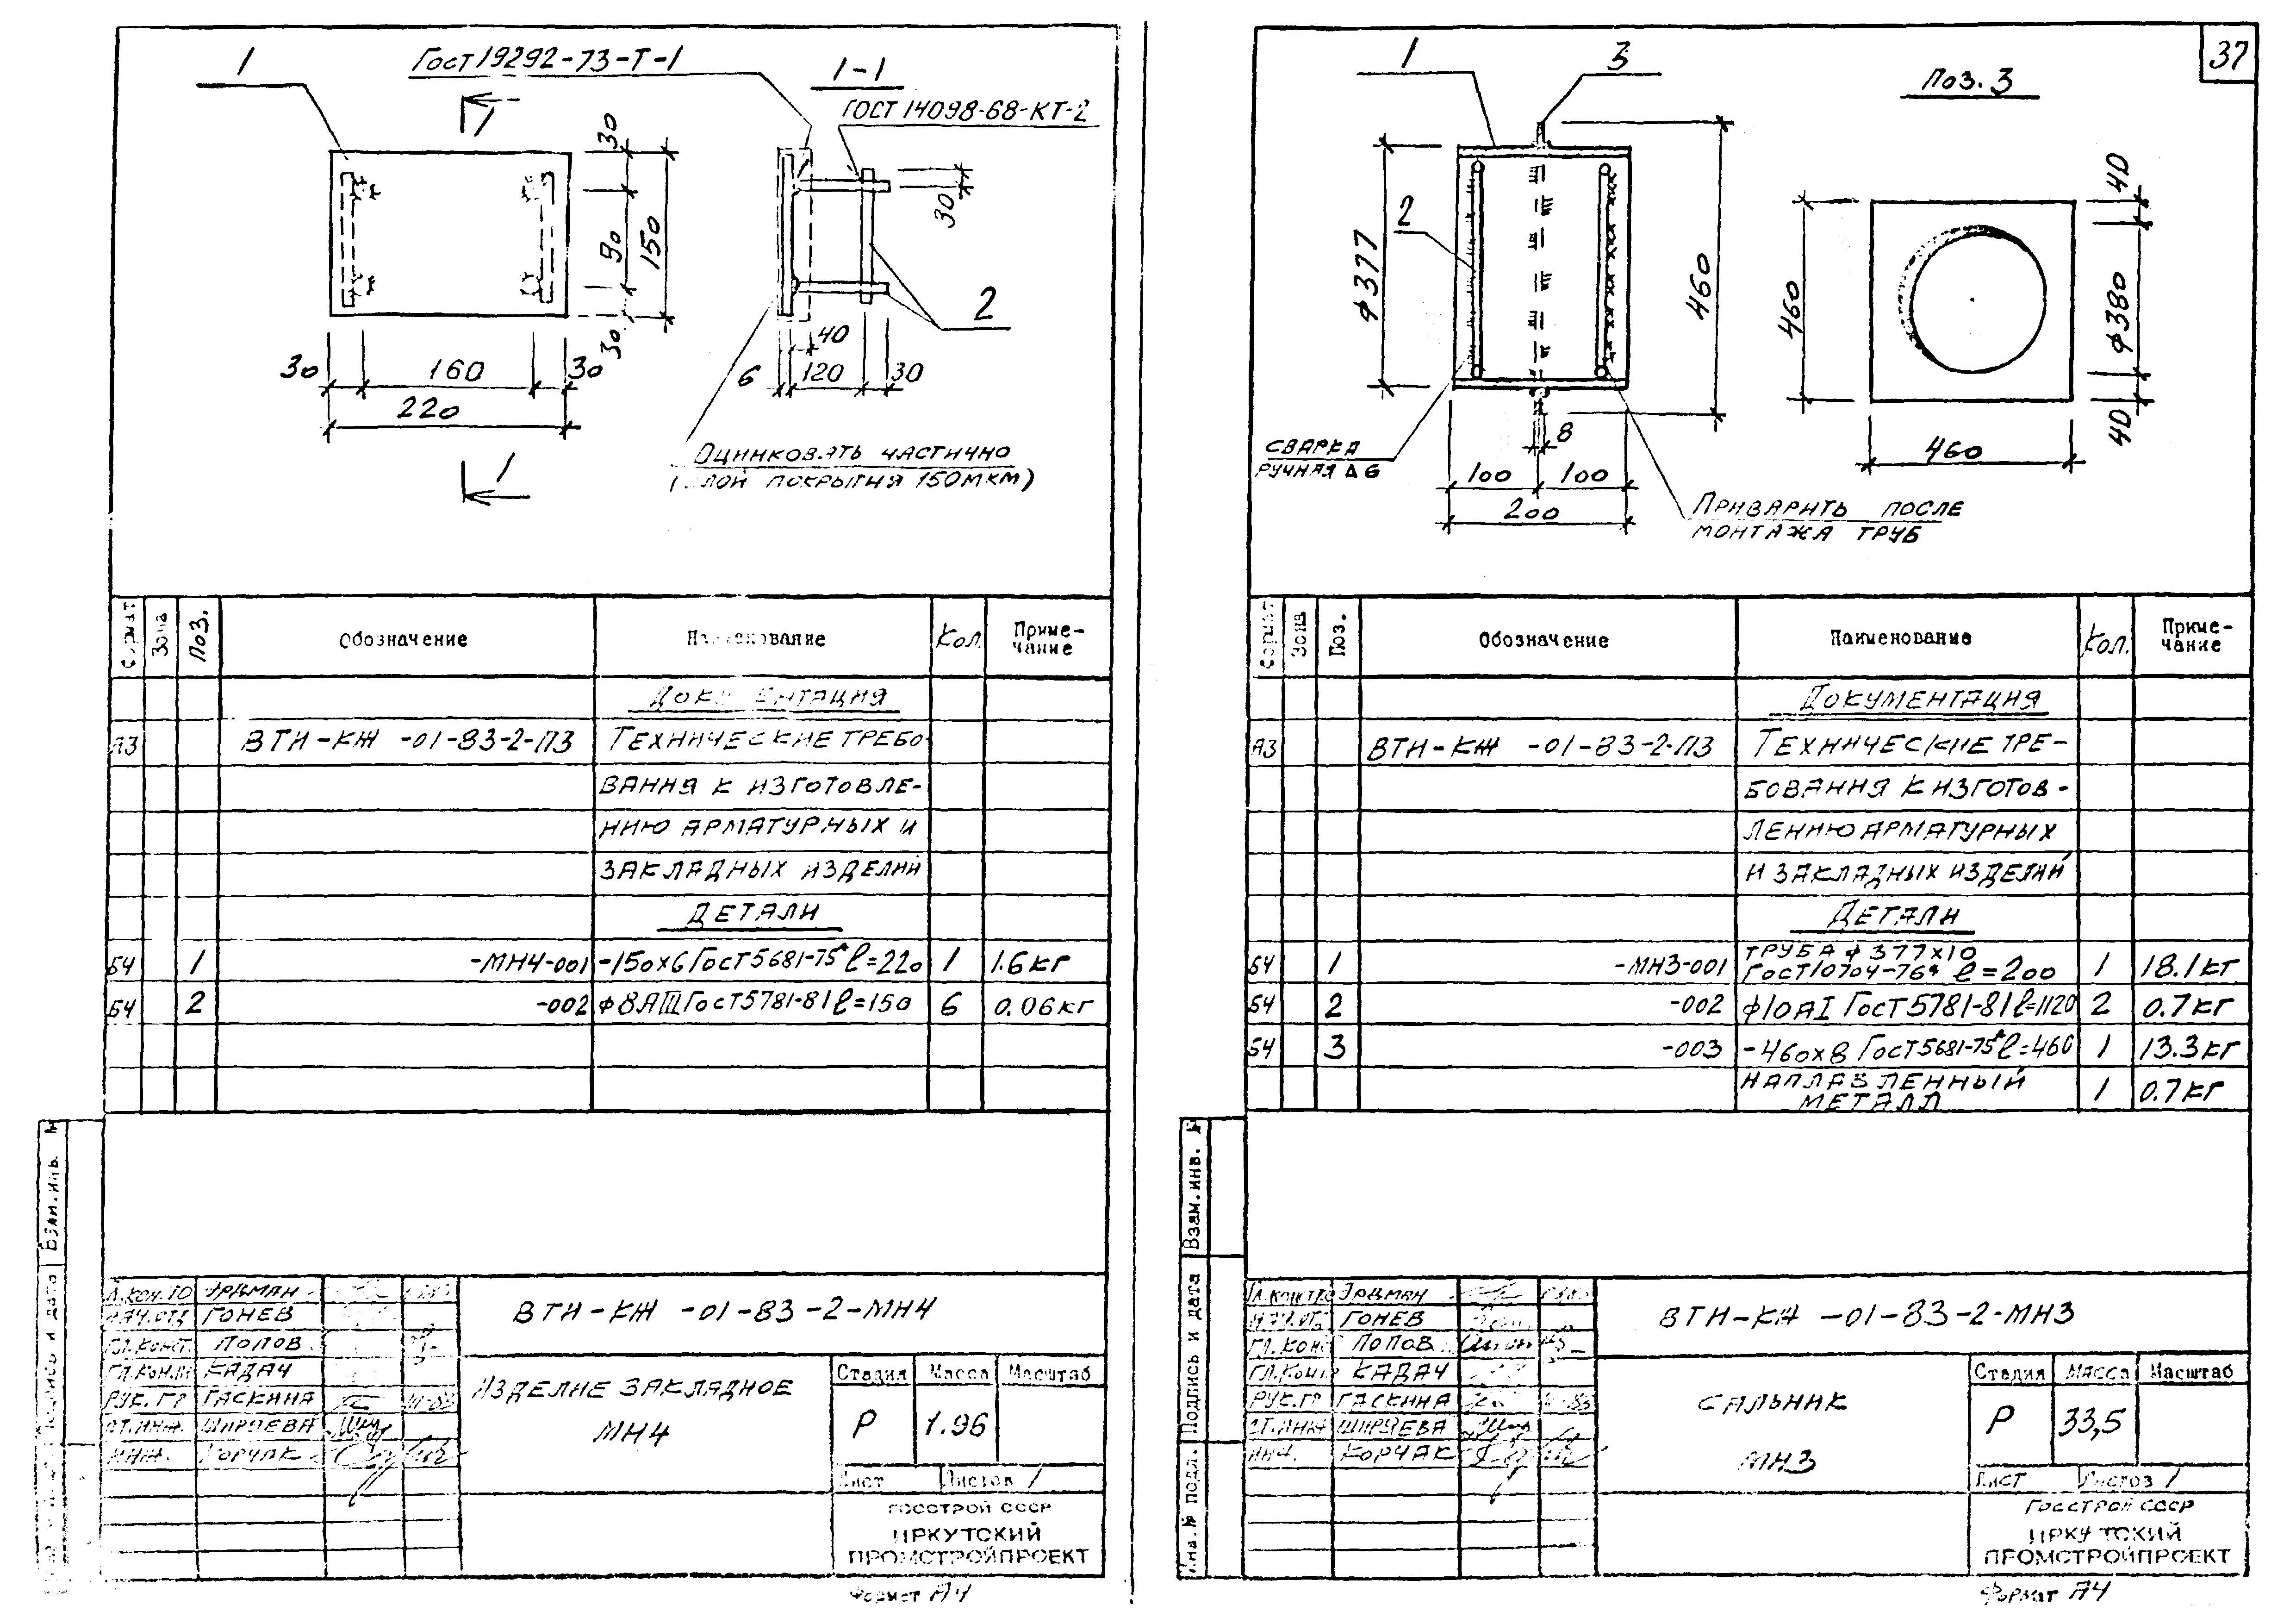 37
1
ГОСТ 19292-73-Т-1
1-1
ГОСТ 14098-68-КТ-2
1
30
90
150
30
30
160
30
220
1
30
2
40
6
120
30
Оцинковать частично
покрытия 150мкм)
Формат
Зона
Поз.
Обозначение
Наименование
Кол.
Приме-
чание
Документация
А3
ВТИ-КЖ -01-83-2-ПЗ
Технические требо-
вания к изготовле-
нию арматурных и
закладных изделий
Детали
БЧ
1
-МН4-001
-150х6 ГОСТ 5681-75* ℓ=220
1
1.6кг
БЧ
2
-002
ф8АIII ГОСТ 5781-81 ℓ=150
6
0.06кг
Взам.инв. №
Подпись и дата
Эрвман
Гонев
Гл.конст. Попов
Кадач
Рук.гр Гаскина
Ст.инж. Ширяева
Инж. Корчак
ВТИ-КЖ -01-83-2-МН4
Изделие закладное
МН4
Стадия
Масса
Масштаб
Р
1.96
Лист
Листов 1
Госстрой СССР
ИРКУТСКИЙ
ПРОМСТРОЙПРОЕКТ
Формат А4
1
3
Поз. 3
ф377
2
460
460
40
ф380
40
460
8
100
100
200
Сварка
ручная Δ6
Приварить после
монтажа труб
Формат
Зона
Поз.
Обозначение
Наименование
Кол.
Приме-
чание
Документация
А3
ВТИ-КЖ -01-83-2-ПЗ
Технические тре-
бования к изготов-
лению арматурных
и закладных изделий
Детали
БЧ
1
-МН3-001
Труба ф 377х10
ГОСТ 10704-76* ℓ=200
1
18.1кг
БЧ
2
-002
ф10АI ГОСТ 5781-81 ℓ=1120
2
0.7кг
БЧ
3
-003
-460х8 ГОСТ 5681-75* ℓ=460
1
13.3кг
Наплавленный
металл
1
0.7кг
Взам.инв. №
Подпись и дата
Инв.№ подл.
Эрвман
Гонев
Попов
Кадач
Рук.гр Гаскина
Ст.инж Ширяева
Инж. Корчак
ВТИ-КЖ -01-83-2-МН3
Сальник
МН3
Стадия
Масса
Масштаб
Р
33,5
Лист
Листов 1
Госстрой СССР
ИРКУТСКИЙ
ПРОМСТРОЙПРОЕКТ
Формат А4